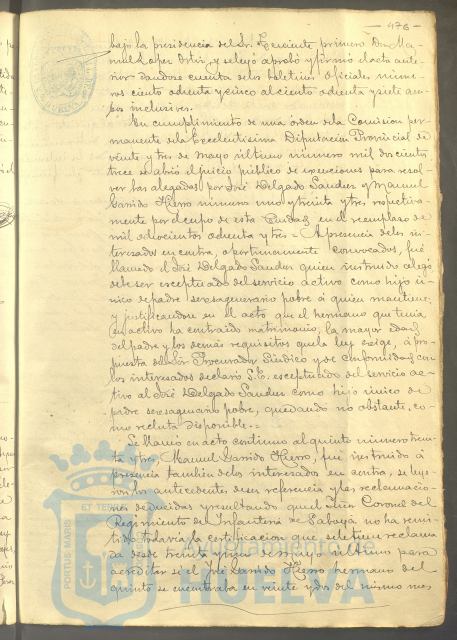 476
bajo la presidencia del Sr. Teniente primero Don Ma-
nuel Lopez Ortiz, y se leyó aprobó y firmó el acta ante-
rior dandose cuenta de los boletines oficiales núme-
ros ciento ochenta y cinco al ciento ochenta y siete am-
bos inclusives.
En cumplimiento de una órden de la Comision per-
manente de la Excelentísima Diputacion Provincial de
veinte y tres de Mayo último número mil doscientos
trece se abrió el juicio público de exenciones para resol-
ver las alegadas por José Delgado Sandus y Manuel
Garrido Hierro números uno y treinta y tres respectiva-
mente por el cupo de esta Ciudad en el reemplazo de
mil ochocientos ochenta y tres = A presencia de los in-
teresados en contra, oportunamente convocados, fué
llamado el José Delgado Sandus quien instruido alegó
debe ser esceptuado del servicio activo como hijo ú-
nico de padre sexsagenario pobre á quien mantiene;
y justificandose en el acto que el hermano que tenia
en activo ha contraido matrimonio, la mayor edad
del padre y los demás requisitos que la ley exige, á pro-
puesta del Sor Procurador Sindico y de conformidad con
los interesados declaró S.E. esceptuado del servicio ac-
tivo al José Delgado Sandus como hijo único de
padre sexsagenario pobre, quedando no obstante, co-
mo recluta disponible.=
Se llamó en acto continuo al quinto número trein-
ta y tres, Manuel Garrido Hierro, fué instruido á
presencia tambien de los interesados en contra, se leye-
ron los antecedentes de su referencia y las reclamacio-
nes deducidas y resultando que el Tnte Coronel del
Regimiento de Infanteria de Saboya no ha remi-
tido todavía la certificacion que se le tiene reclama-
da desde treinta y uno de Mayo último para
acreditar si el José Garrido Hierro hermano del
quinto se encontraba en veinte y dos del mismo mes
PORTUS MARIS
ET TERRAE
HUELVA